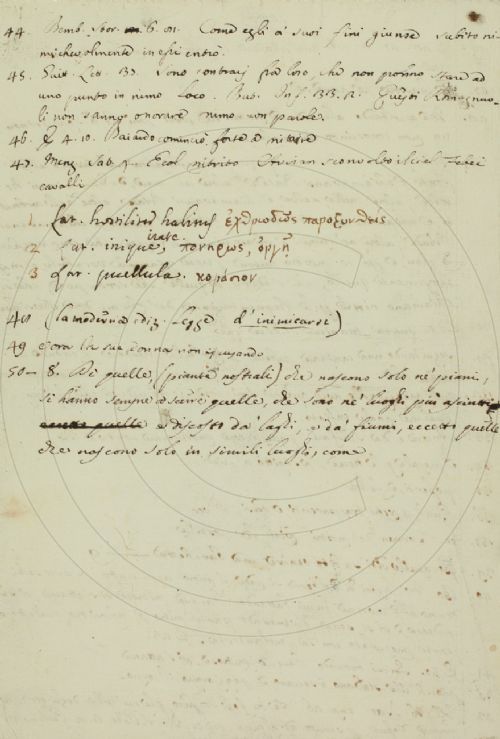 44. Bemb. Stor. 6. 81. Come egli a' suoi fini giunse subito ni-
michevolmente in essi entrò.
45. Guitt. Lett. 13. sono contrarj fra loro, che non possono stare ad
uno punto in nimo loco. But. Inf. 33. R. Questi Romagnuo-
li non sanno onorare nimo con parole.
46. 4. 10. Baiardo cominciò forte a nitrire
47. Menz. Sat. Ecol nitrito
cavalli
1 Lat. hostiliter ἐχθρωδῶς παροξυνθείς
2 Lat. inique, irate, πονηρως, ὀργῇ
3 Lat. puellula. κοράσιον
48 (la moderna ediz. legge d'inimicarsi)
49 e ora la sua donna non
50— 8. Di quelle, (piante nostrali) che nascono solo ne' piani,
si hanno sempre a scire quelle, che sono ne' luoghi più asciutti
e discosto da laghi, e da' fiumi, eccetto quelle
che nascono solo in simili luoghi, come